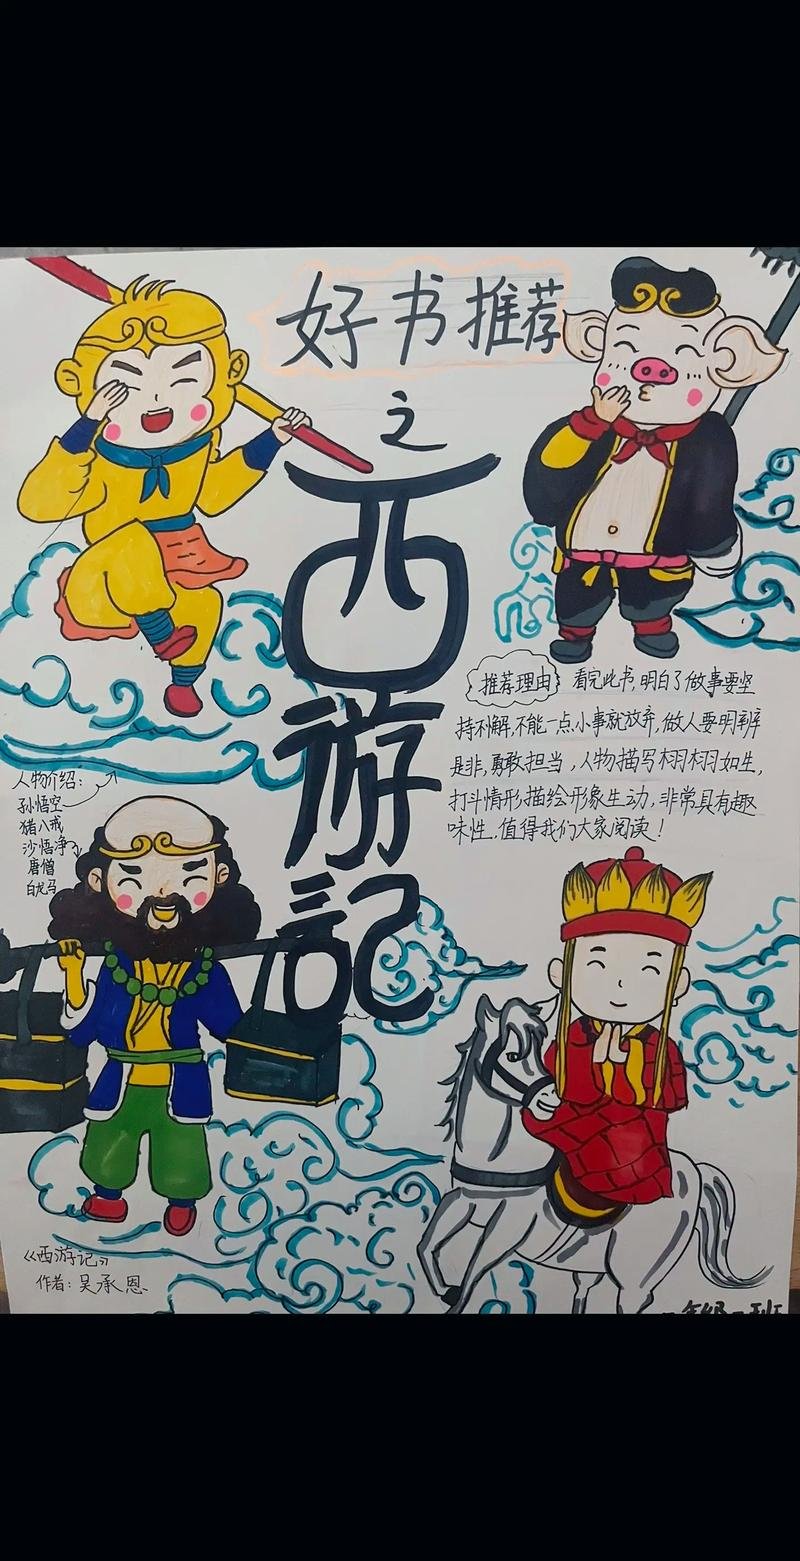 好书推荐
之
西
游
記
推荐理由 看完此书,明白了做事要坚
持不懈,不能一点小事就放弃,做人要明辨
是非,勇敢担当,人物描写栩栩如生,
打斗情形描绘形象生动,非常具有趣
味性.值得我们大家阅读!
人物介绍:
孙悟空
猪八戒
沙悟净
唐僧
白龙马
《西游记》
作者:吴承恩
一年级一班